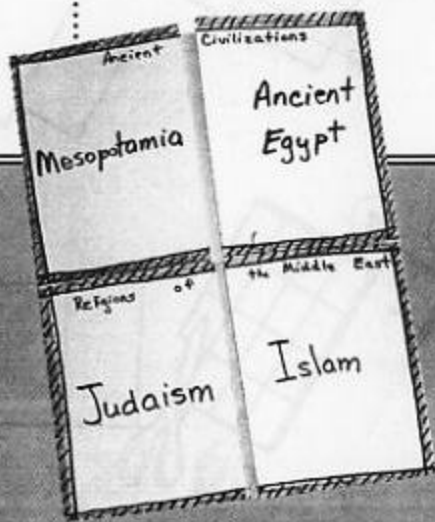 Ancient Civilizations
Mesopotamia
Ancient
Egypt
Religions of the Middle East
Judaism
Islam